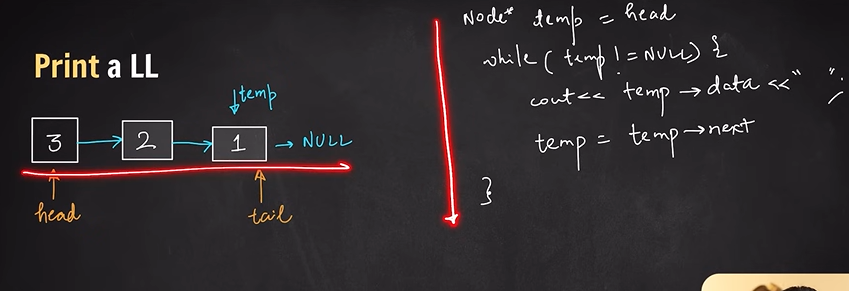 Print a LL
temp
3 2 1 NULL
head tail
Node* temp = head
while ( temp != NULL) {
cout<< temp → data << " ";
temp = temp → next
}